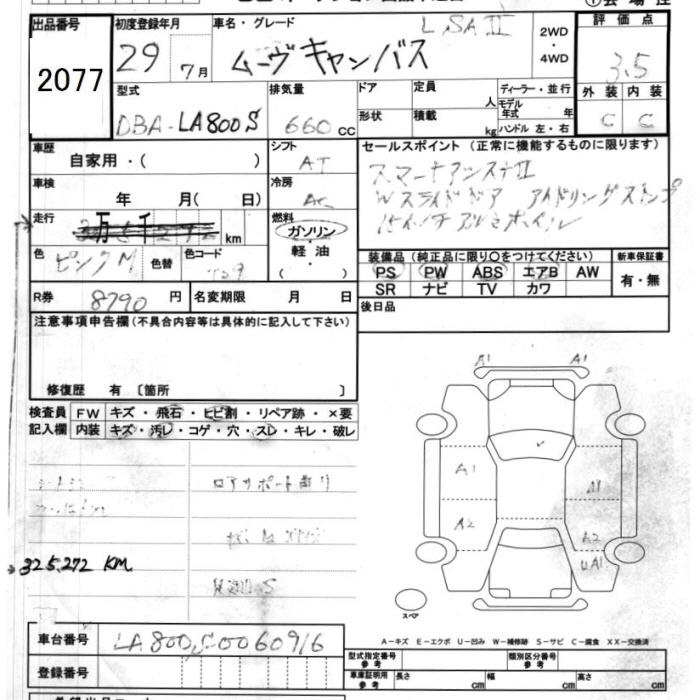 出品番号 初度登録年月 車名・グレード 評価点
2077 29 7月 ムーヴキャンバス L SAⅡ 2WD・4WD 3.5
型式 排気量 ドア 定員 人 ディーラー・並行 外装 内装
DBA-LA800S 660 CC 形状 積載 kg モデル年式 年 ハンドル 左・右 C C
車歴 自家用・( ) シフト AT セールスポイント (正常に機能するものに限ります)
スマートアシストⅡ
Wスライドドア アイドリングストップ
車検 年 月( 日) 冷房 AC
アルミホイル
走行 万 千 km 燃料 ガソリン・軽油・( )
色 ピンクM 色替 色コード
装備品 (純正品に限り〇をつけてください) 新車保証書
PS PW ABS エアB AW 有・無
SR ナビ TV カワ
R券 8790 円 名変期限 月 日
後日品
注意事項申告欄 (不具合内容等は具体的に記入して下さい)
修復歴 有 〔箇所 〕
検査員記入欄 FW キズ・飛石・ヒビ割・リペア跡・×要
内装 キズ・汚レ・コゲ・穴・スレ・キレ・破レ
A1 A1
A1 A1
A2 A2
UA1
ロアサポート曲り
325,272 KM
スペア
A-キズ E-エクボ U-凹み W-補修跡 S-サビ C-腐食 XX-交換済
車台番号 LA800S-0060916
型式指定番号 参考 類別区分番号 参考
登録番号 車庫証明用 参考 長さ cm 幅 cm 高さ cm